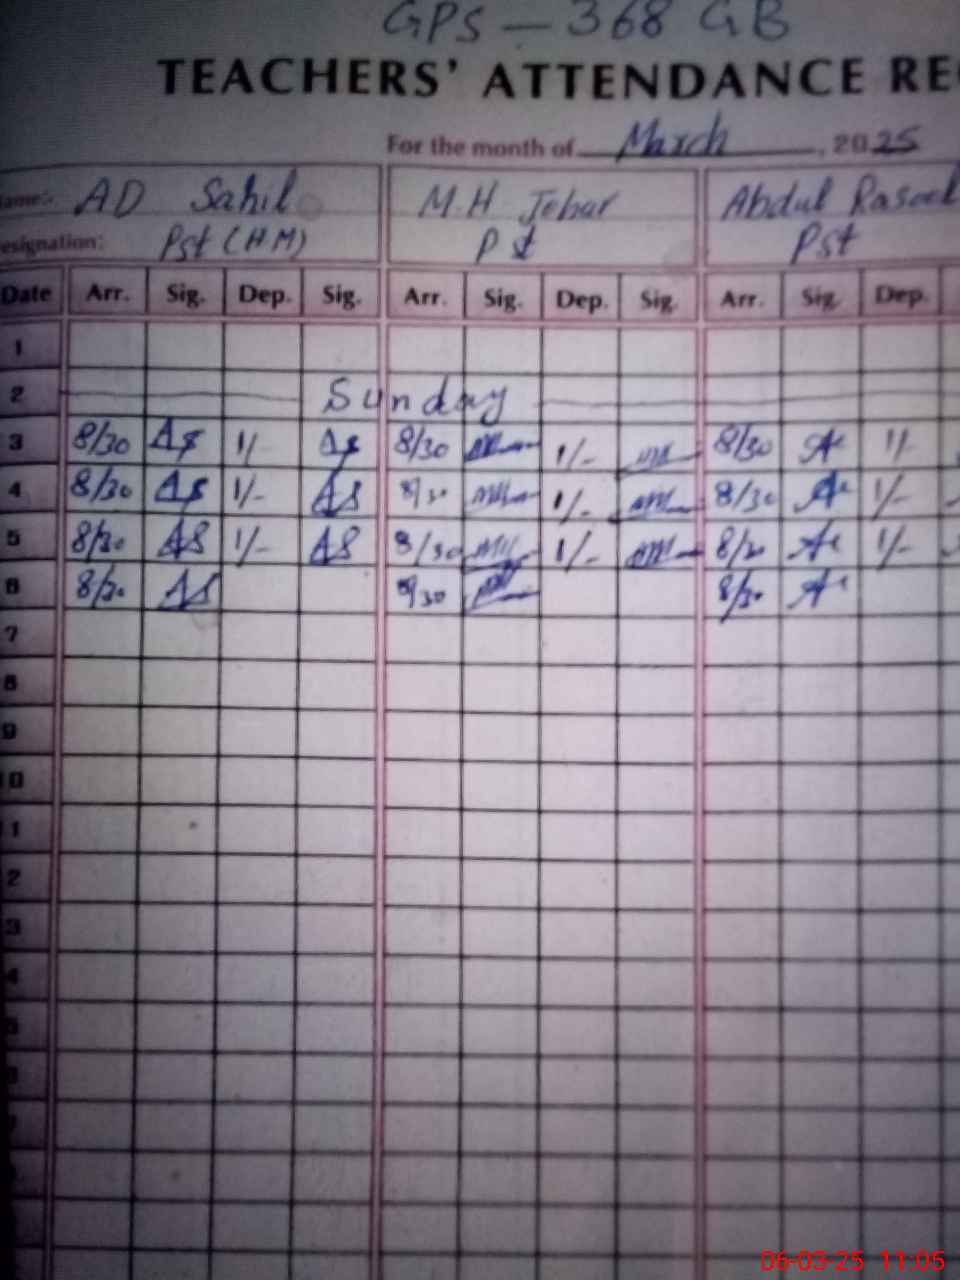 GPS - 368 GB
TEACHERS' ATTENDANCE RE
For the month of March, 2025
ame:- AD Sahil M.H Johar Abdul Rasool
esignation: Pst (HM) Pst Pst
Date Arr. Sig. Dep. Sig. Arr. Sig. Dep. Sig. Arr. Sig. Dep.
1
2 Sunday
3 8/30 AS 1/- AS 8/30 1/- 8/30 A 1/-
4 8/30 AS 1/- AS 8/30 1/- 8/30 A 1/-
5 8/30 AS 1/- AS 8/30 1/- 8/30 A 1/-
6 8/30 AS 8/30 8/30 A
7
8
9
10
1
2
3
4
5
06-03-25 11:05